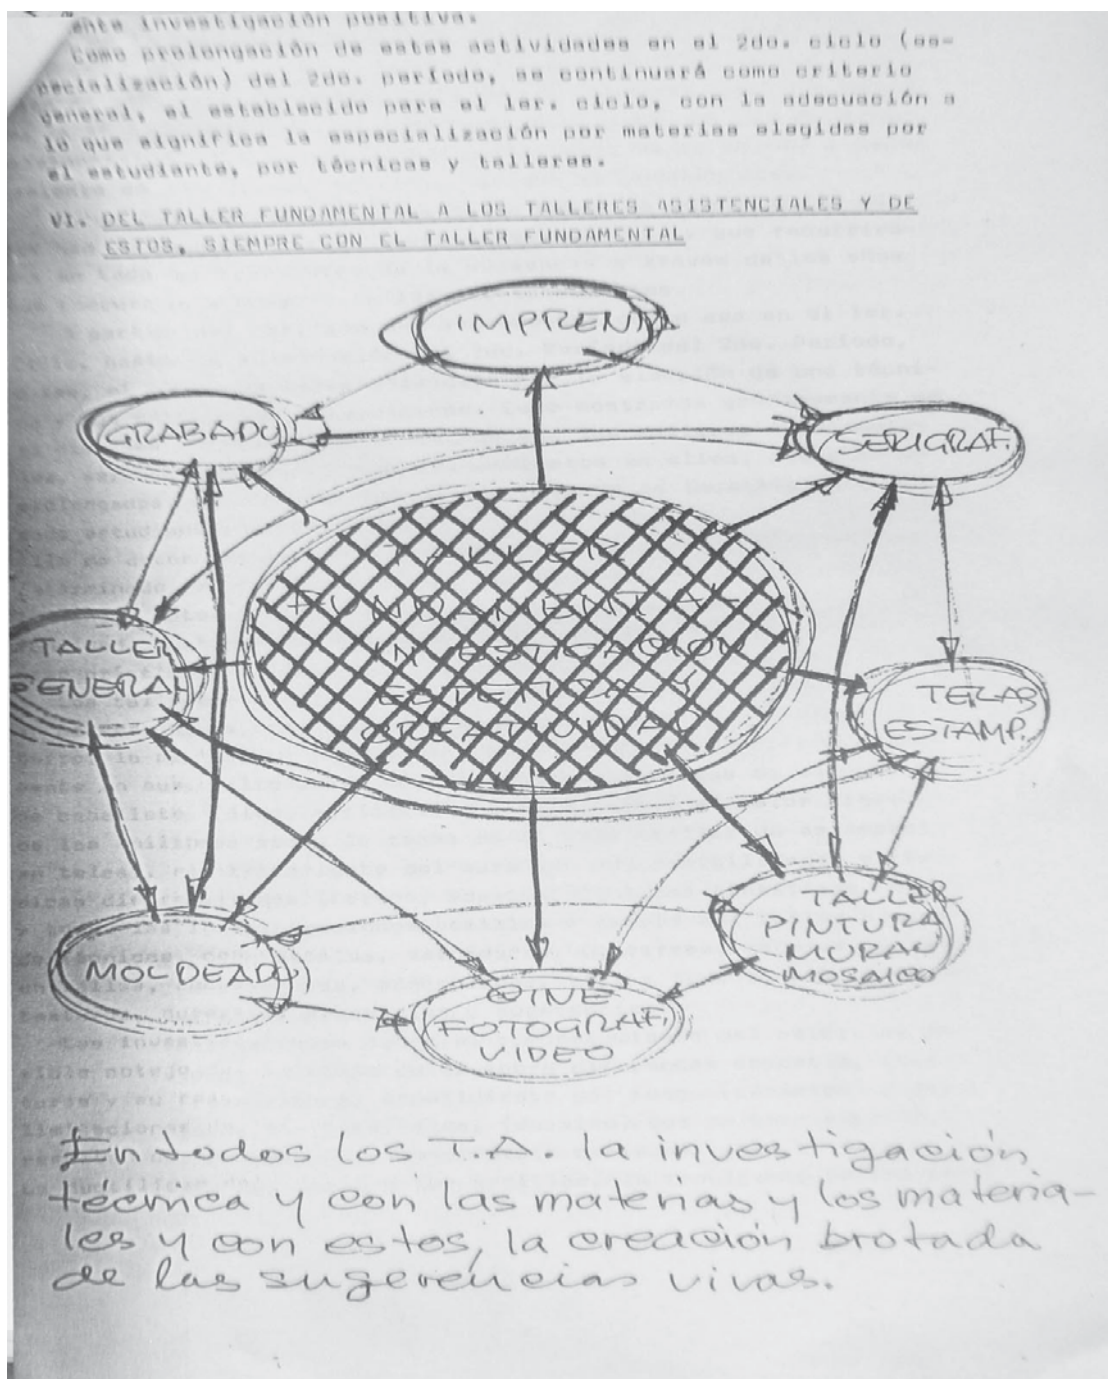 ente investigación positiva.
Como prolongación de estas actividades en el 2do. ciclo (es-
pecialización) del 2do. período, se continuará como criterio
general, el establecido para el 1er. ciclo, con la adecuación a
lo que significa la especialización por materias elegidas por
el estudiante, por técnicas y talleres.
VI. DEL TALLER FUNDAMENTAL A LOS TALLERES ASISTENCIALES Y DE
ESTOS, SIEMPRE CON EL TALLER FUNDAMENTAL
IMPRENTA
GRABADO
SERIGRAF.
TALLER
FUNDAMENTAL
INVESTIGACION
ESTETICA Y
CREATIVIDAD
TALLER
GENERAL
TELAS
ESTAMP.
TALLER
PINTURA
MURAL
MOSAICO
MOLDEADO
CINE
FOTOGRAF.
VIDEO
En todos los T.A. la investigación
técnica y con las materias y los materia-
les y con estos, la creación brotada
de las sugerencias vivas.